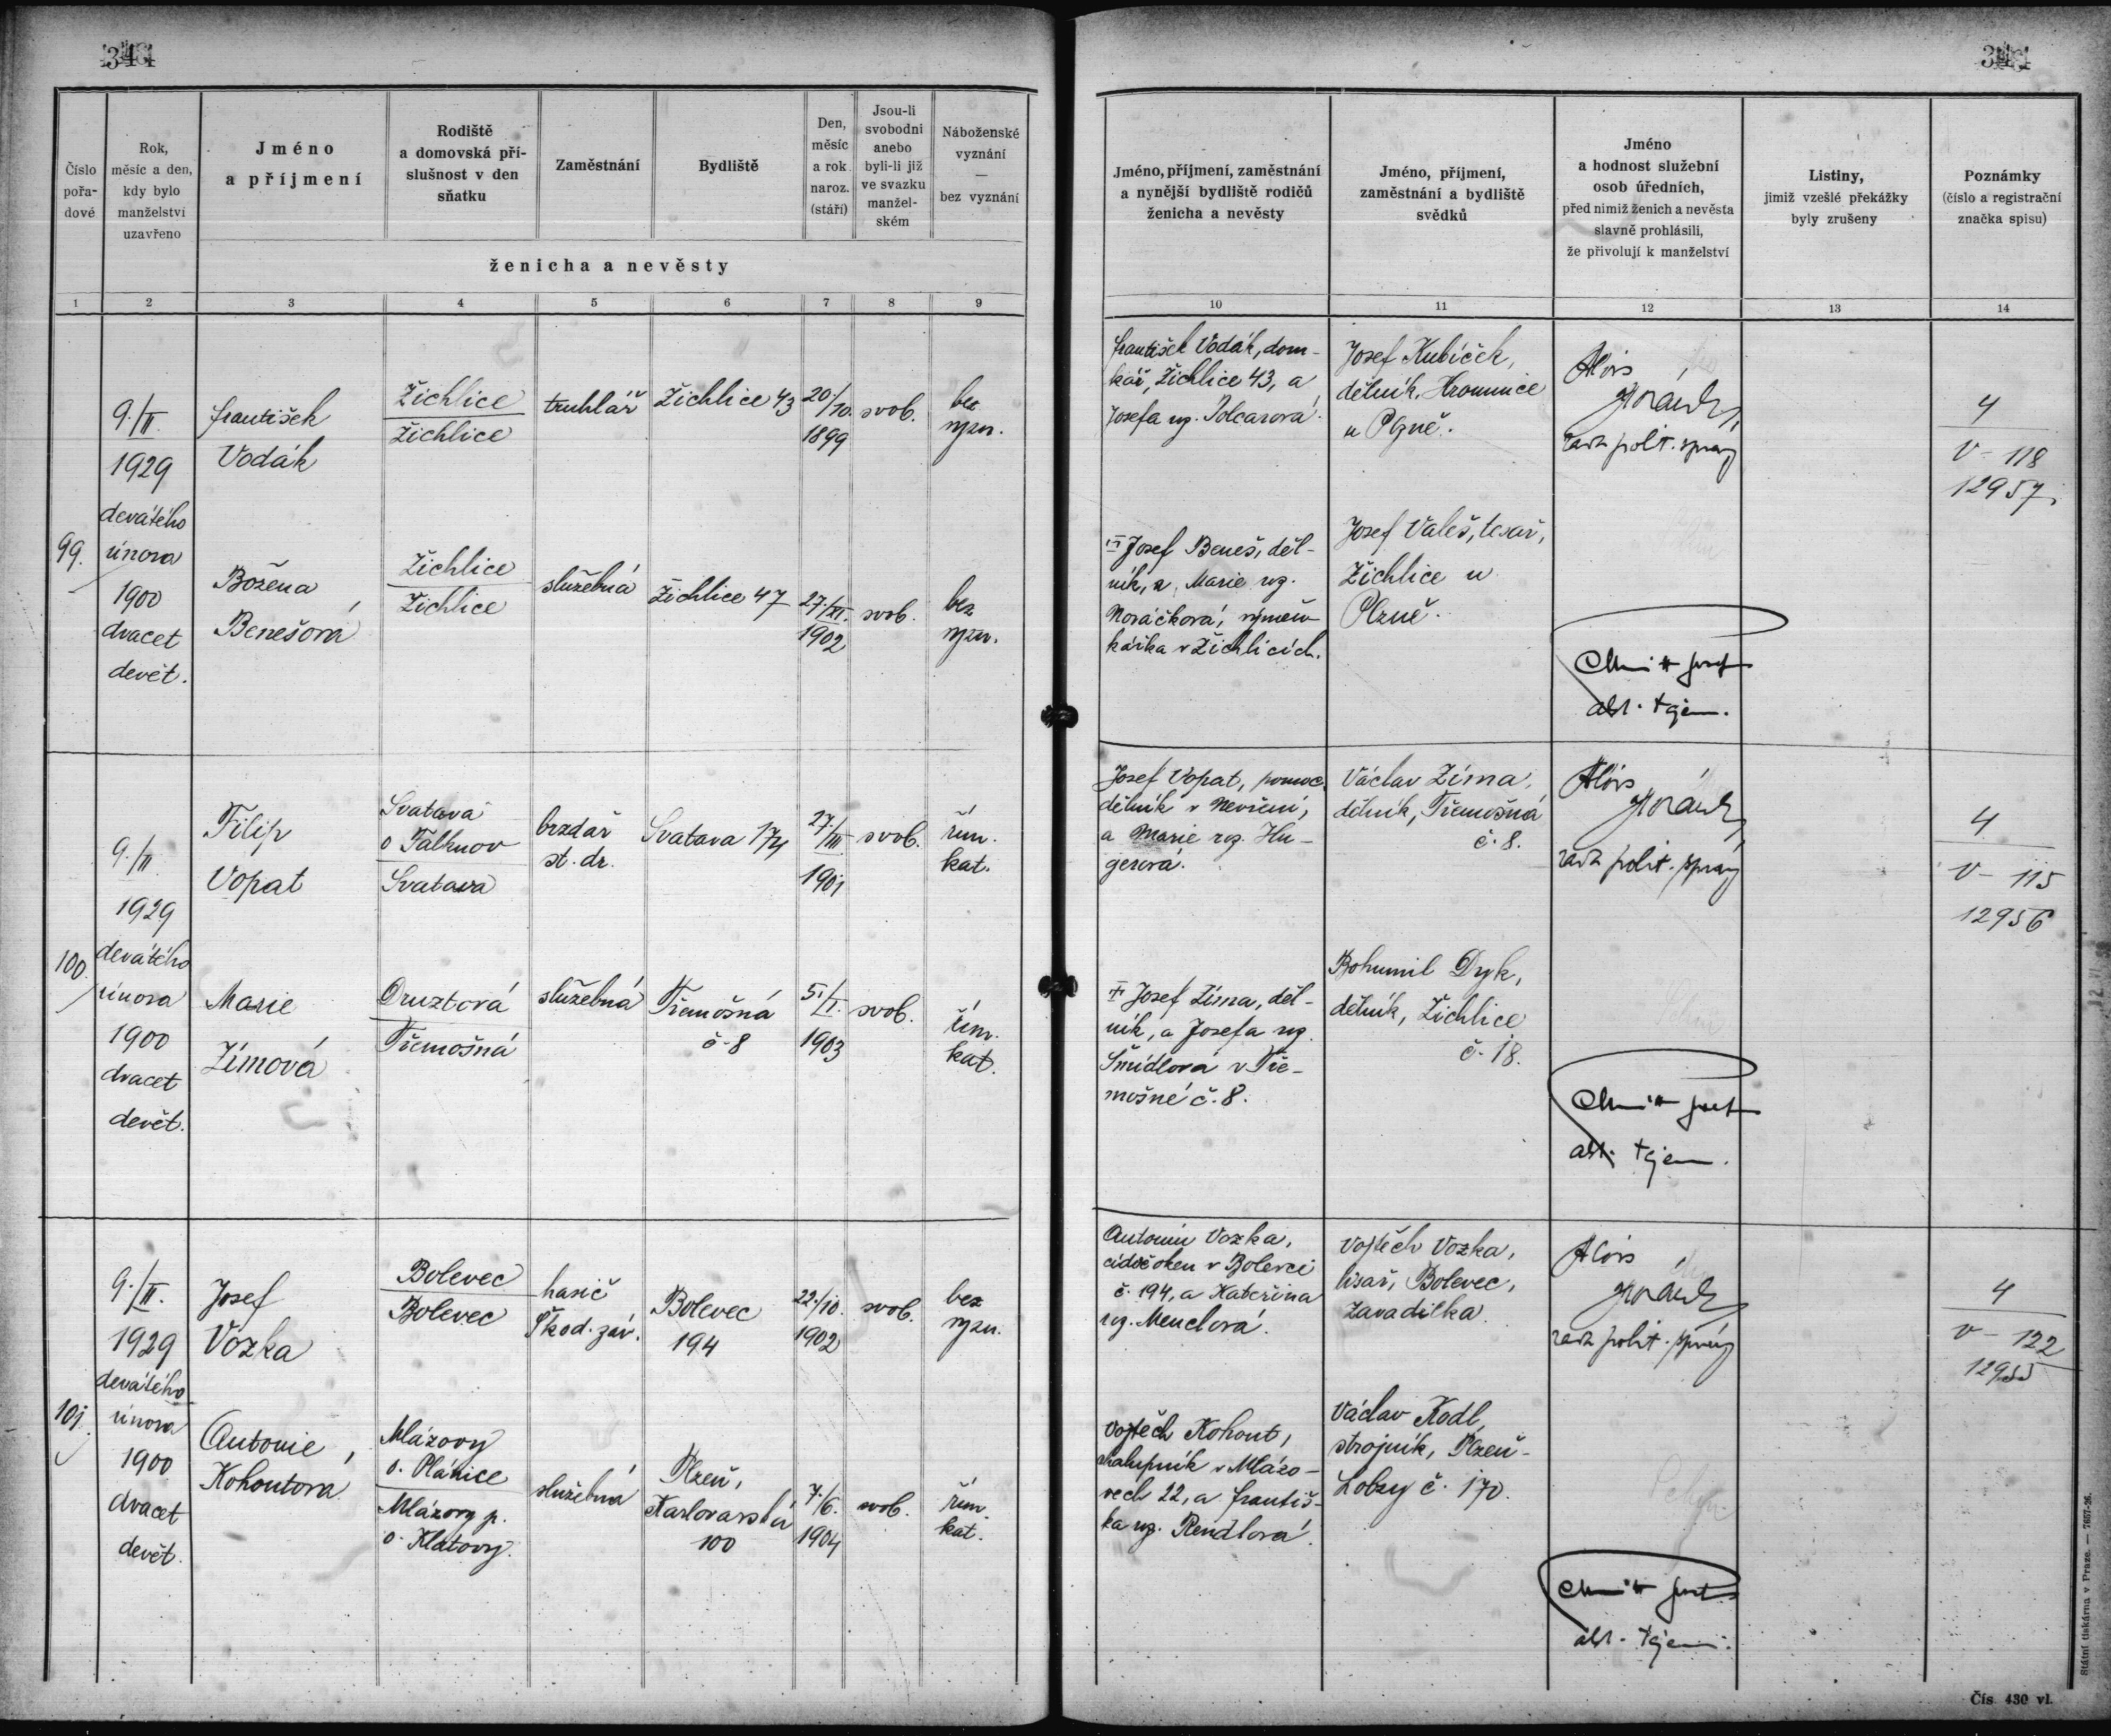 Číslo
pořa-
dové
Rok,
měsíc a den,
kdy bylo
manželství
uzavřeno
Jméno
a příjmení
Rodiště
a domovská pří-
slušnost v den
sňatku
Zaměstnání
Bydliště
Den,
měsíc
a rok
naroz.
(stáří)
Jsou-li
svobodni
anebo
byli-li již
ve svazku
manžel-
ském
Náboženské
vyznání
—
bez vyznání
ženicha a nevěsty
1 2 3 4 5 6 7 8 9
99.
9./II.
1929
devátého
února
1900
dvacet
devět.
František
Vodák
Žichlice
Žichlice
truhlář
Žichlice 43
20./10.
1899
svob.
bez
vyzn.
Božena
Benešová
Žichlice
Žichlice
služebná
Žichlice 47
27./XI.
1902
svob.
bez
vyzn.
100.
9./II
1929
devátého
února
1900
dvacet
devět.
Filip
Vopat
Svatava
o Falknov
Svatava
brzdař
st. dr.
Svatava 174
27./III
1901
svob.
řím.
kat.
Marie
Zímová
Druztová
Třemošná
služebná
Třemošná
č. 8
5./I.
1903
svob.
řím.
kat.
101.
9./II.
1929
devátého
února
1900
dvacet
devět.
Josef
Vozka
Bolevec
Bolevec
hasič
Škod. záv.
Bolevec
194
22./10.
1902
svob.
bez
vyzn.
Antonie
Kohoutová
Mlázovy
o. Plánice
Mlázovy p.
o. Klatovy.
služebná
Plzeň,
Karlovarská
100
7./6.
1904
svob.
řím.
kat.
Jméno, příjmení, zaměstnání
a nynější bydliště rodičů
ženicha a nevěsty
Jméno, příjmení,
zaměstnání a bydliště
svědků
Jméno
a hodnost služební
osob úředních,
před nimiž ženich a nevěsta
slavně prohlásili,
že přivolují k manželství
Listiny,
jimiž vzešlé překážky
byly zrušeny
Poznámky
(číslo a registrační
značka spisu)
10 11 12 13 14
František Vodák, dom-
kář, Žichlice 43, a
Josefa roz.
Josef Kubíček,
dělník, Hromnice
u Plzně.
Alois
rada polit. správy
4
V - 118
12957
Josef Beneš, děl-
ník, a Marie roz.
Nováčková, výměn-
kářka v Žichlicích.
Josef Valeš, tesař,
Žichlice u
Plzně.
akt. tajem.
Josef Vopat, pomoc.
dělník v Nevřeni,
a Marie roz. Hu-
gerová.
Václav Zíma,
dělník, Třemošná
č. 8.
Alois
rada polit. správy
4
V - 115
12956
Josef Zíma, děl-
ník, a Josefa roz.
Šmídlová v Tře-
mošné č. 8.
Bohumil Dyk,
dělník, Žichlice
č. 18.
akt. tajem.
Antonín Vozka,
cídič oken v Bolevci
č. 194, a Kateřina
roz. Menclová.
Vojtěch Vozka,
lisař, Bolevec,
Zavadilka.
Alois
rada polit. správy
4
V - 122
12955
Vojtěch Kohout,
chalupník v Mlázo-
vech 22, a Františ-
ka roz. Rendlová.
Václav Kodl,
strojník, Plzeň-
Lobzy č. 170.
akt. tajem.
Státní tiskárna v Praze. — 7657-26.
Čís. 430 vl.